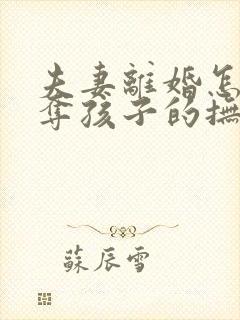 夫妻離婚怎
奪孩子的撫
蘇辰雪